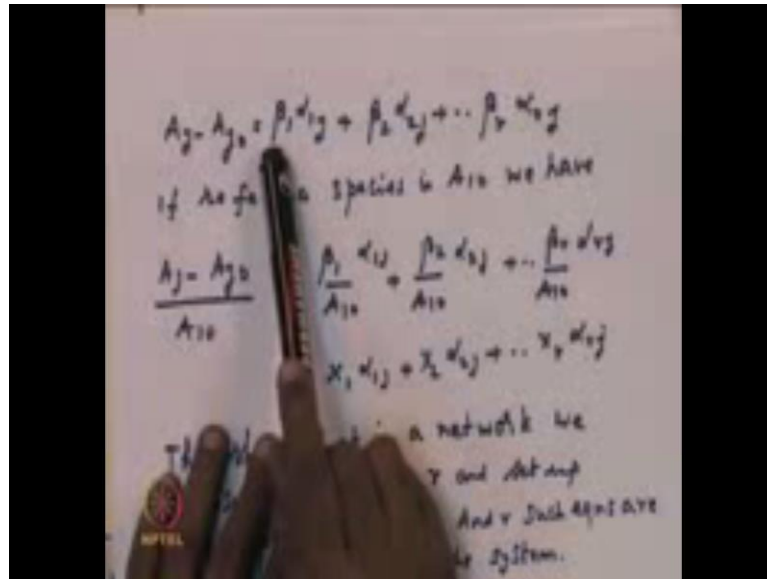 Aj - Aj0 = β1 α1j + β2 α2j + .. βr αrj
If species is A10 we have
Aj - Aj0 / A10 β1/A10 α1j + β2/A10 α2j + .. βr/A10 αrj
x1 α1j + x2 α2j + .. xr αrj
a network we
r and set up
And r such eqns are
system.
NPTEL